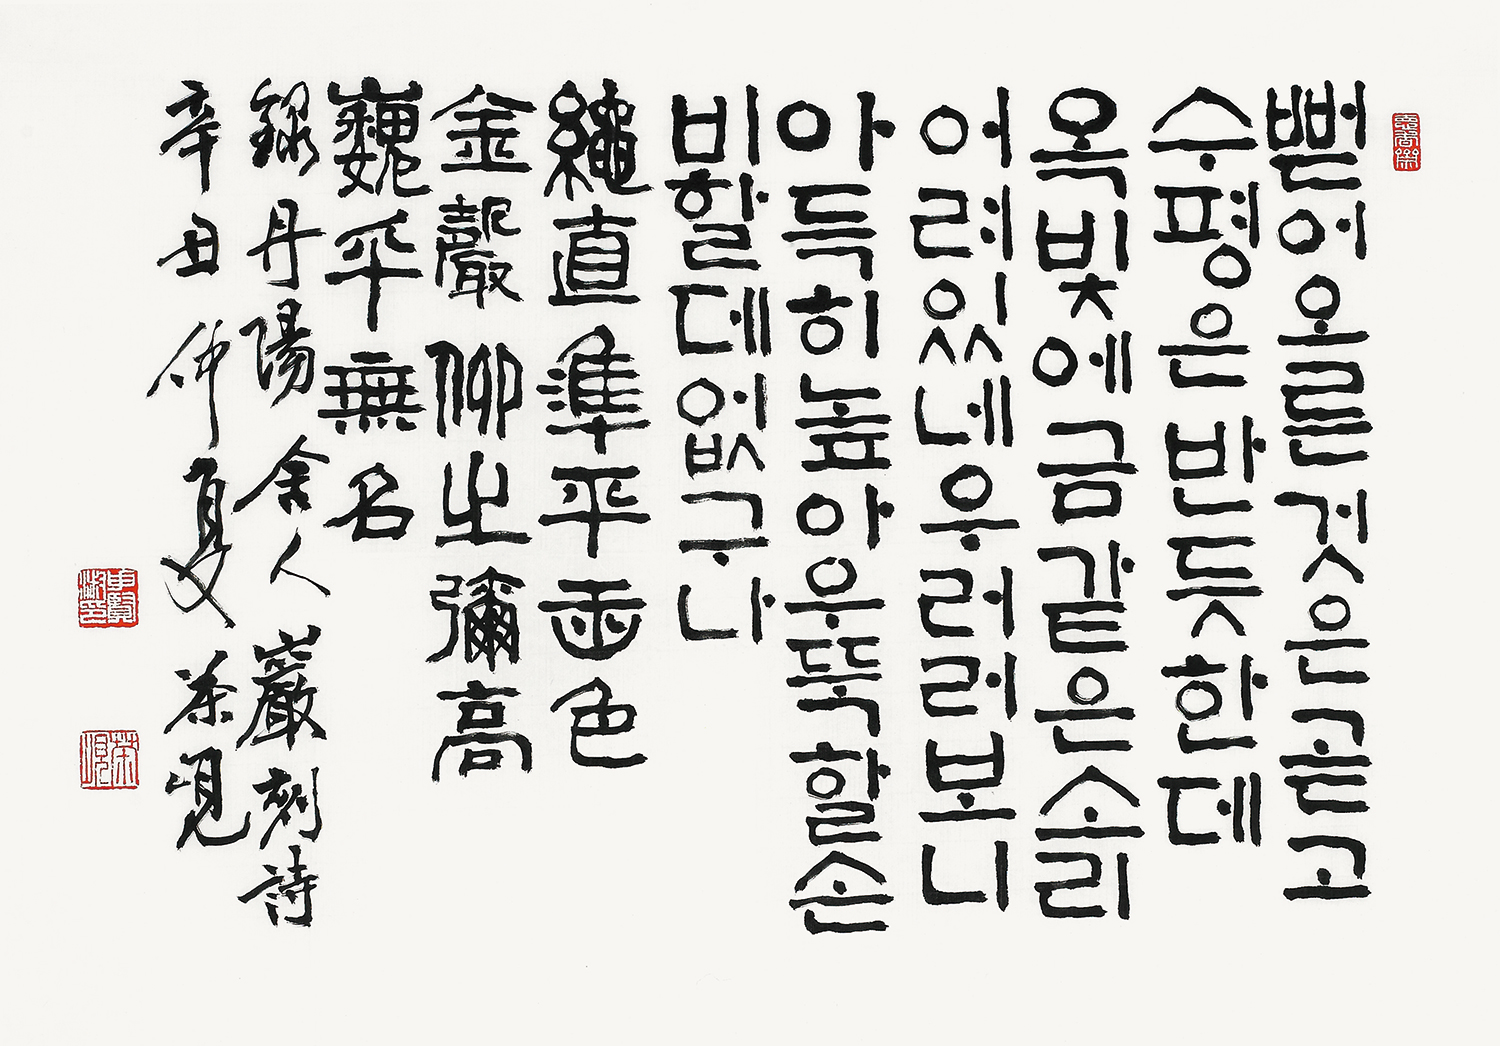 뻗어오른것은곧고
수평은반듯한데
옥빛에금같은소리
어려있네우러러보니
아득히높아우뚝할손
비할데없구나
繩直準平玉色
金聲仰之彌高
巍乎無名
錄丹陽舍人巖刻詩
辛丑仲夏茶峴